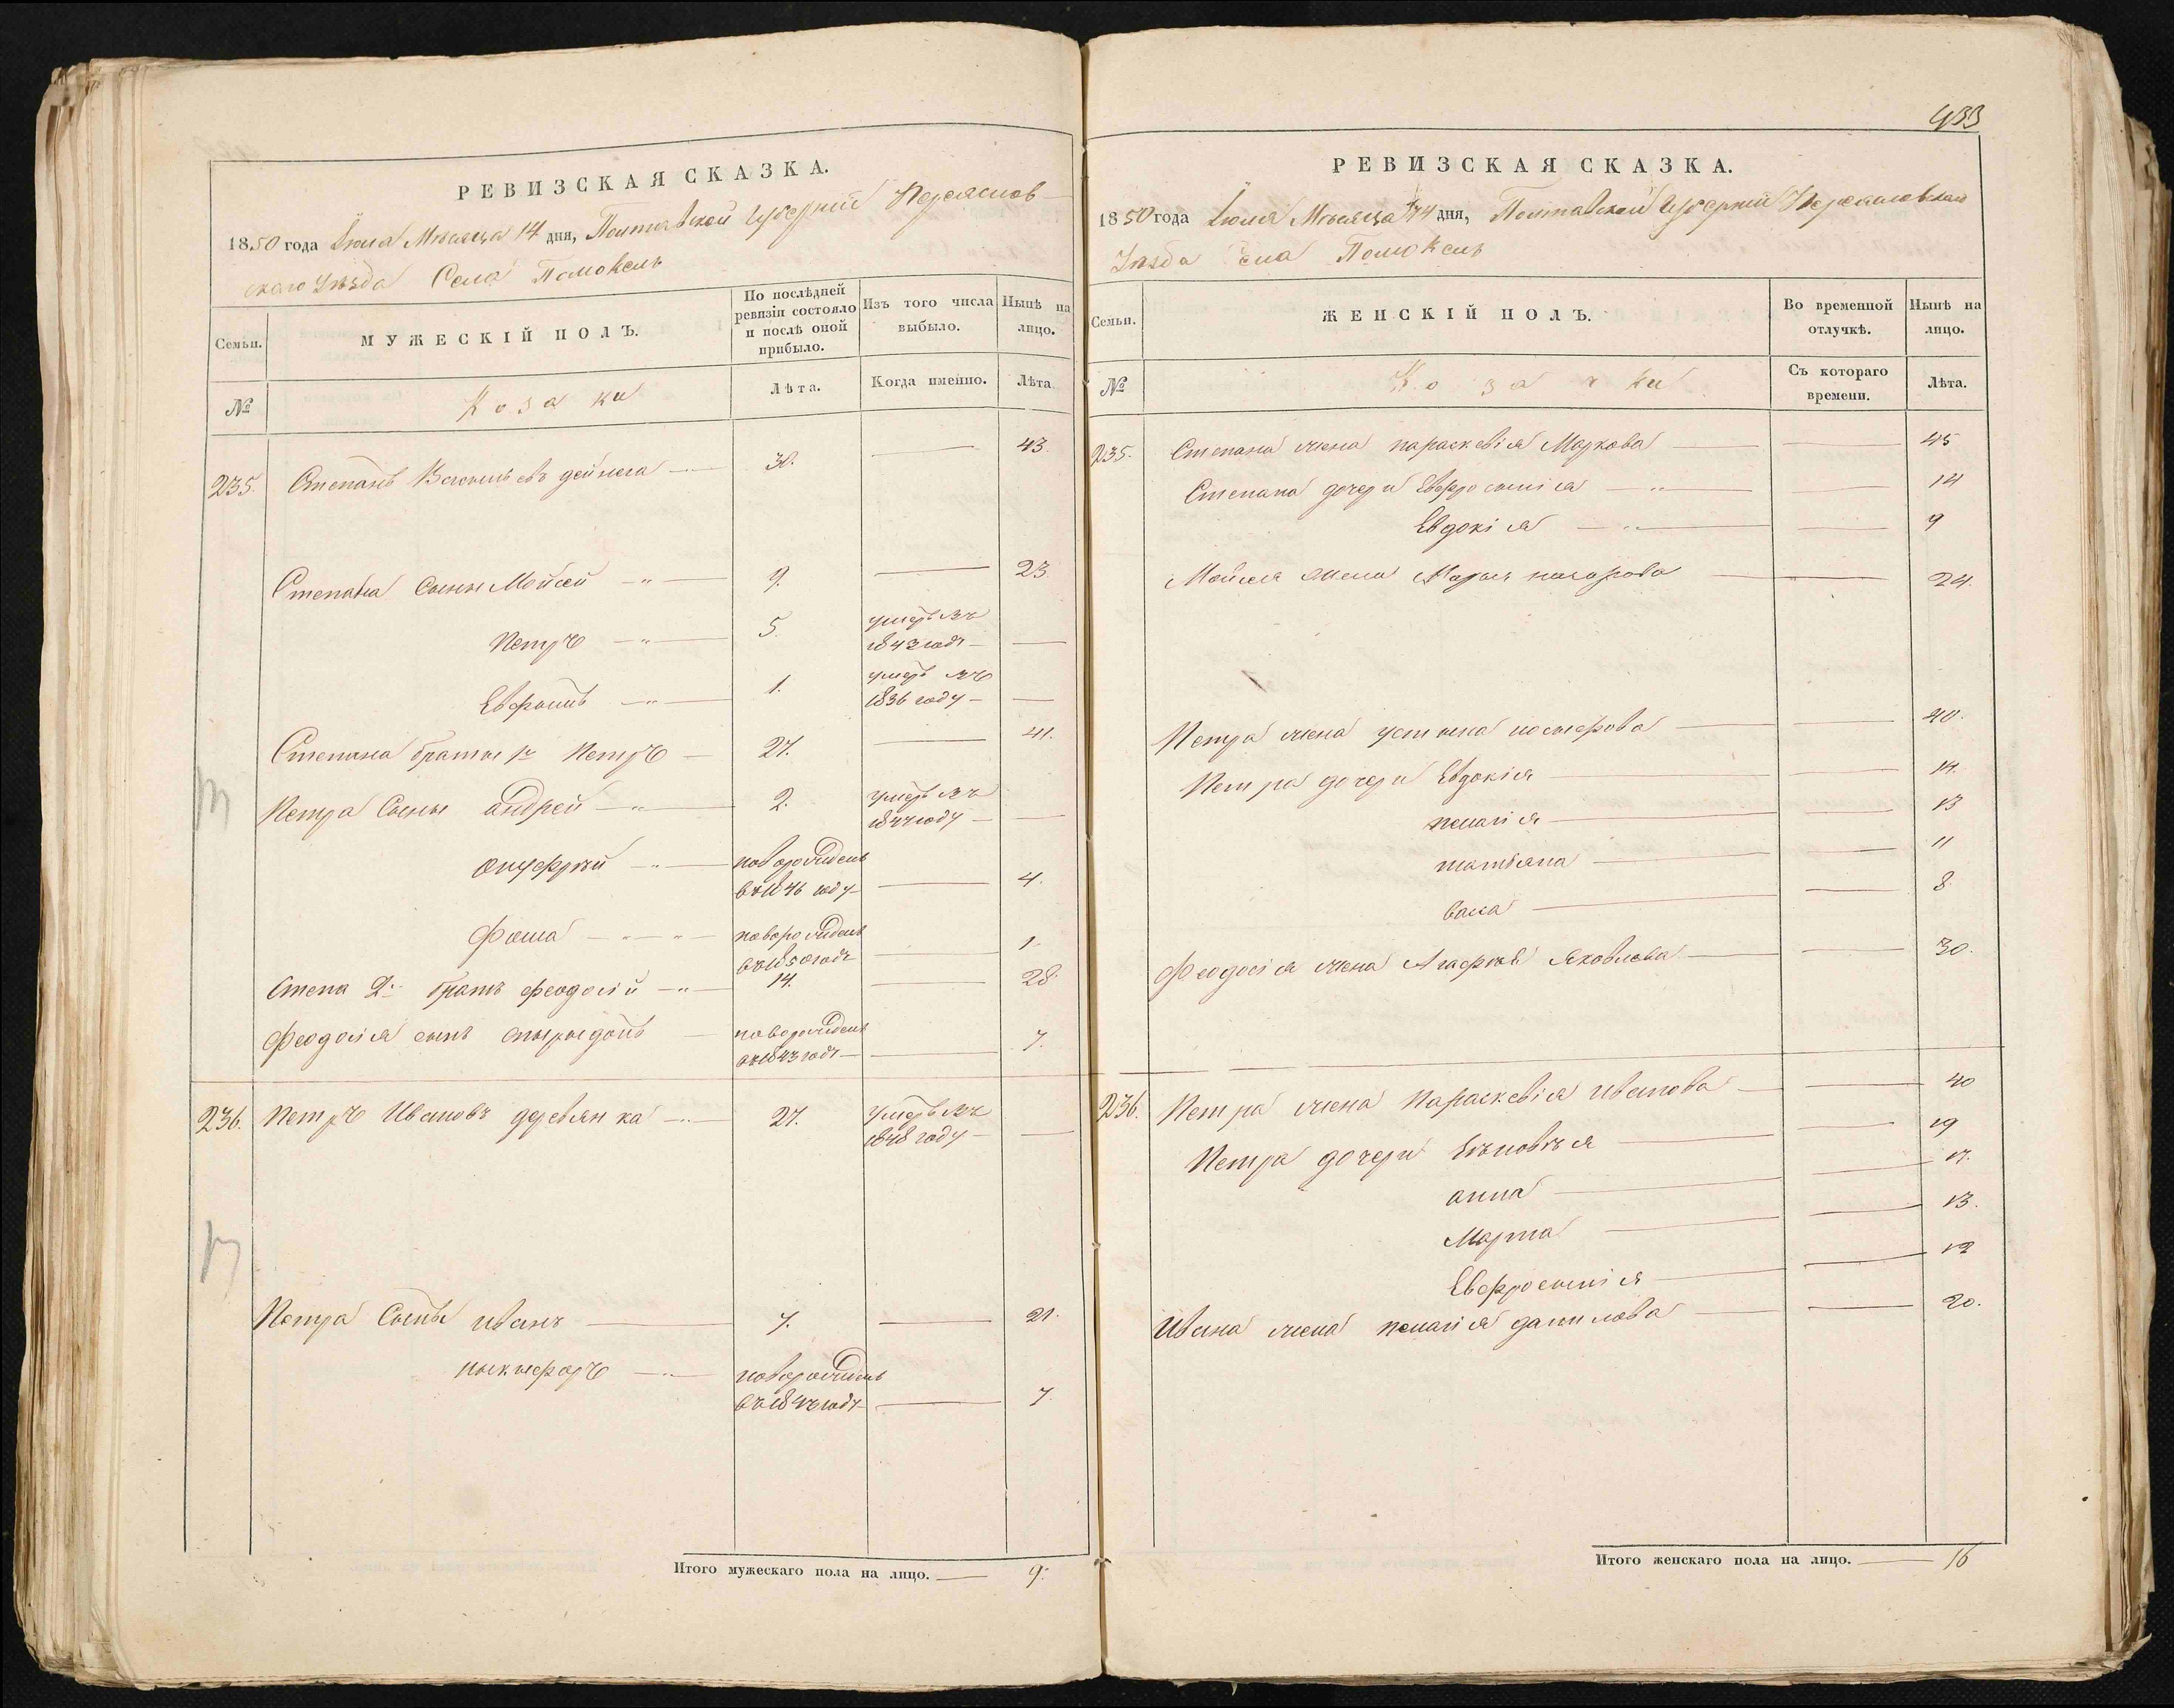 РЕВИЗСКАЯ СКАЗКА.
1850 года Іюля Мѣсяца 14 дня, Полтавской Губерніи Переяслов
скаго Уѣзда Села Помоклъ
Семьи.
МУЖЕСКІЙ ПОЛЪ.
По послѣдней
ревизіи состояло
и послѣ оной
прибыло.
Изъ того числа
выбыло.
Нынѣ на
лицо.
№
Козаки
Лѣта.
Когда именно.
Лѣта
235. Степанъ Васильевъ дейнега 30. 43.
Степана Сыны Мойсей 9. 23
Петръ 5. умеръ въ
1843 годѣ
Евфимъ 1. умеръ въ
1836 году
Степана братья 1й Петръ 27. 41.
Петра Сыны андрей 2. умеръ въ
1844 году
онуфрій новорожденъ
въ 1846 году 4.
Фома новорожденъ
въ 1850 годѣ 1.
Степа 2й братъ феодосій 14. 28.
Феодосія сынъ спиридонъ новорожденъ
въ 1843 годѣ 7.
236. Петръ Ивановъ деревянка 27. умеръ въ
1848 году
Петра Сыны иванъ 7. 21.
никифоръ новорожденъ
7.
Итого мужескаго пола на лицо. 9.
433
РЕВИЗСКАЯ СКАЗКА.
1850 года Іюля Мѣсяца 14 дня, Полтавской Губерніи Переясловскаго
Уѣзда Села Помоклъ
Семьи.
ЖЕНСКІЙ ПОЛЪ.
Во временной
отлучкѣ.
Нынѣ на
лицо.
№
Козачки
Съ котораго
времени.
Лѣта.
235. Степана жена параскевія Маркова 45
Степана дочери Евфросинія 14
Евдокія 9
Мойсея жена 24.
Петра жена устина 40.
Петра дочери Евдокія 14.
пелагія 13
татіана 11
васа 8.
Феодосія жена Агафія Яковлева 30.
236. Петра жена Параскевія иванова 40
Петра дочери 19
анна 17.
Марта 13.
Евфросинія 12
Ивана жена пелагія данилова 20.
Итого женскаго пола на лицо. 16